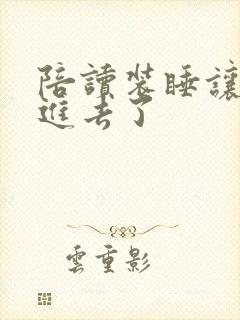 陪讀装睡讓
進去了
雲重影